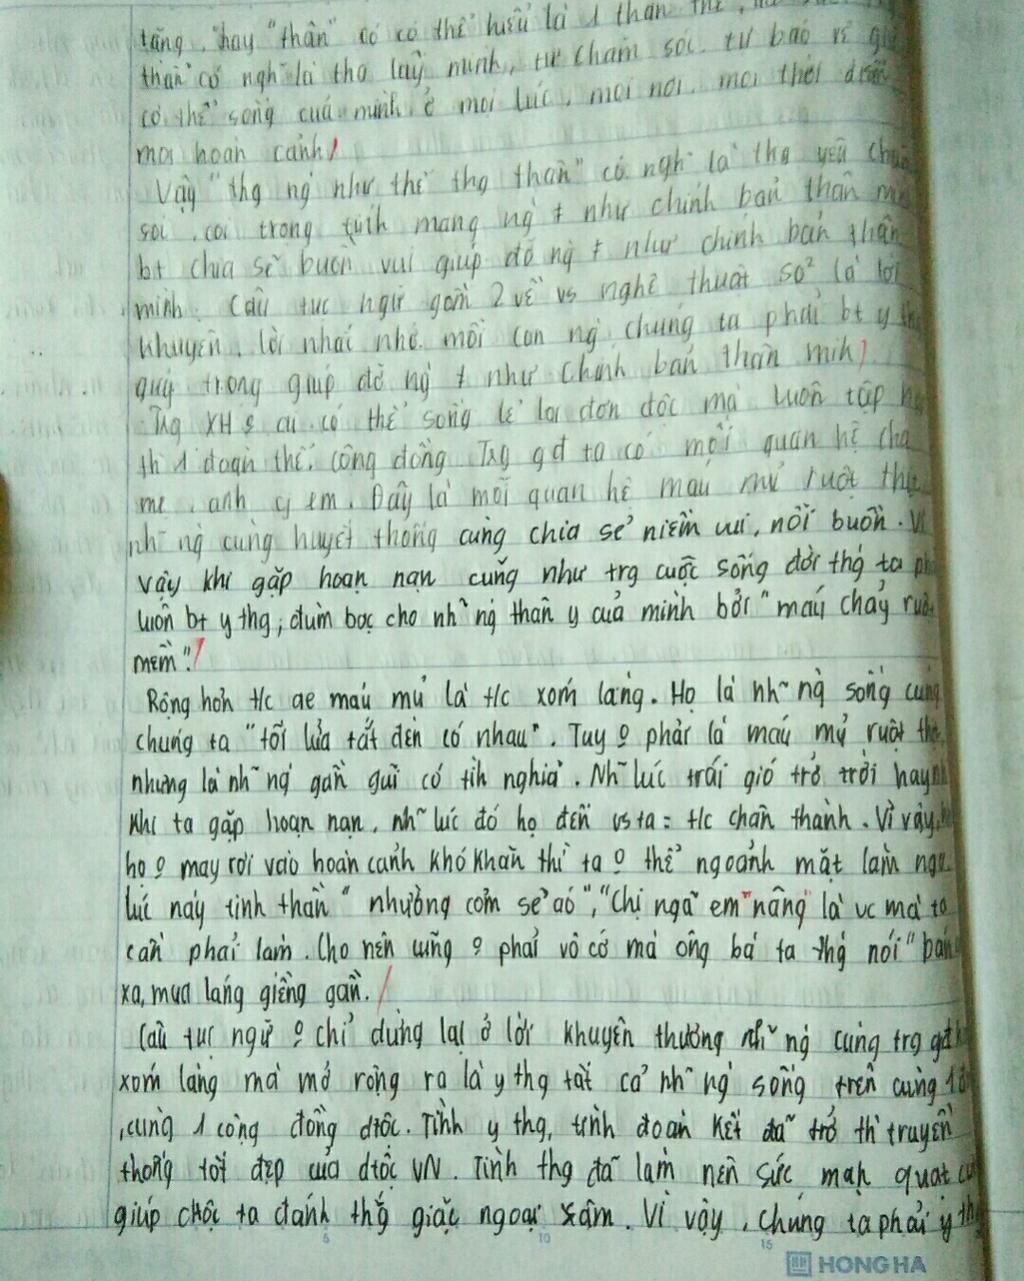 tặng, hay "thân" có có thể hiểu là 1 thân thể,
thân có nghĩ là thg lấy mình, tự chăm sóc, tự bảo vệ
cơ thể sống của mình ở mọi lúc, mọi nơi, mọi thời điểm
mọi hoàn cảnh
Vậy "thg ng như thể thg thân" có nghĩ là thg yêu
soi, coi trọng tính mạng ng ≠ như chính bản thân
bt chia sẻ buồn vui giúp đỡ ng ≠ như chính bản thân
mình. Câu tục ngữ gồm 2 vế vs nghệ thuật so² là lời
khuyên, lời nhắc nhở mỗi con ng chúng ta phải bt y
quý trọng giúp đỡ ng ≠ như chính bản thân mìh
Trg XH o ai có thể sống lẻ loi đơn độc mà luôn tập
th 1 đoạn thể, cộng đồng. Trg gđ ta có mối quan hệ cha
mẹ, anh cj em. Đây là mối quan hệ máu mủ ruột
nh~ ng cùng huyết thống cùng chia sẻ niềm vui, nỗi buồn. Vì
vậy khi gặp hoạn nạn cũng như trg cuộc sống đời thg ta
luôn bt y thg, đùm bọc cho nh~ ng thân y của mình bởi "máu chảy ruột
mềm".
Rộng hơn t/c ae máu mủ là t/c xóm làng. Họ là nh~ ng sống cùng
chúng ta "tối lửa tắt đèn có nhau". Tuy o phải là máu mủ ruột
nhưng là nh~ ng gần gũi có tìh nghĩa. Nh~ lúc trái gió trở trời hay
khi ta gặp hoạn nạn, nh~ lúc đó họ đến vs ta = t/c chân thành. Vì vậy,
họ o may rơi vào hoàn cảnh khó khăn thì ta o thể ngoảnh mặt làm ngơ
lúc này tinh thần "nhường cơm sẻ áo", "Chị ngã em nâng" là vc mà ta
cần phải làm. Cho nên cũng o phải vô cớ mà ông bà ta thg nói "bán
xa, mua láng giềng gần.
Câu tục ngữ o chỉ dừng lại ở lời khuyên thương nh~ ng cùng trg gđ
xóm làng mà mở rộng ra là y thg tất cả nh~ ng sống trên cùng 1
, cùng 1 cộng đồng dtộc. Tình y thg, tình đoàn kết đã trở th truyền
thống tốt đẹp của dtộc VN. Tình thg đã làm nên sức mạh
giúp chúng ta đánh thắg giặc ngoại xâm. Vì vậy, chúng ta phải y
5 10 15
HONG HA